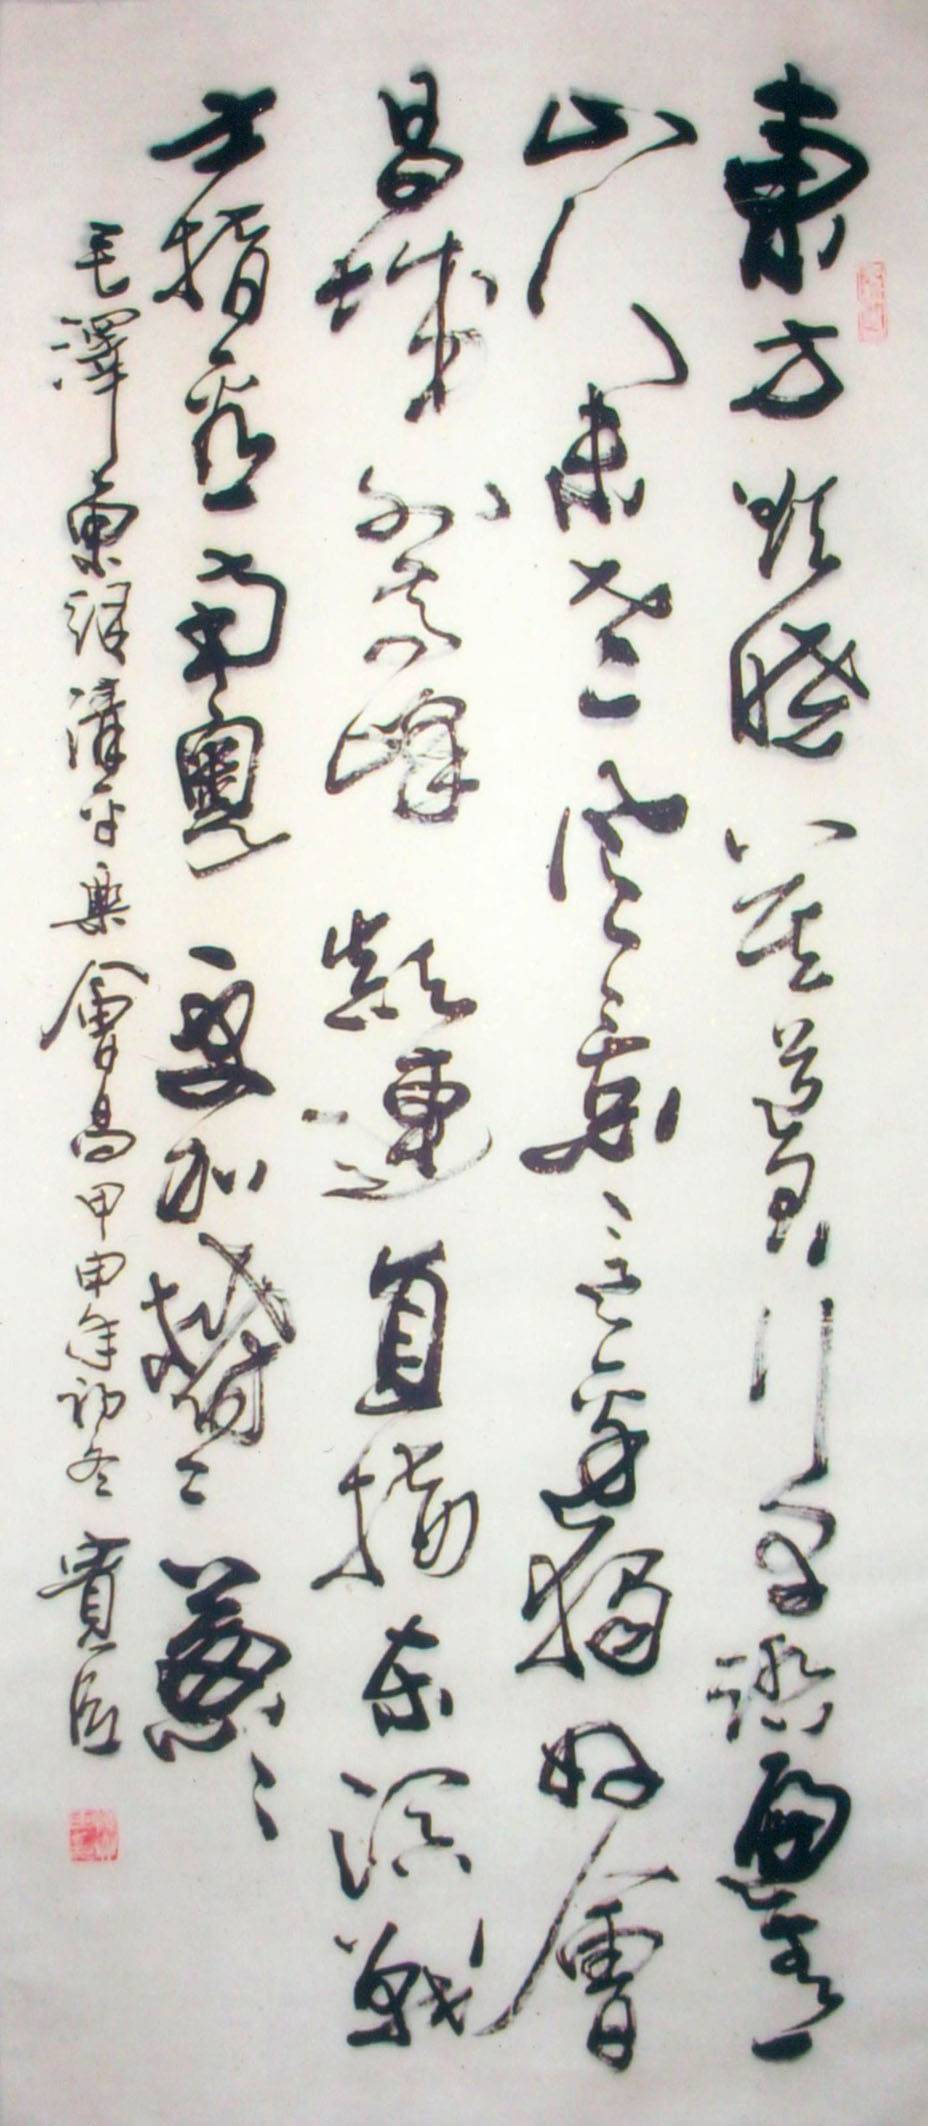 東方欲曉莫道君行早踏遍青
山人未老風景這邊獨好會
昌城外高峰顛連直接東溟戰
士指看南粵更加鬱〻葱〻
毛澤東詞清平樂會昌甲申年初冬